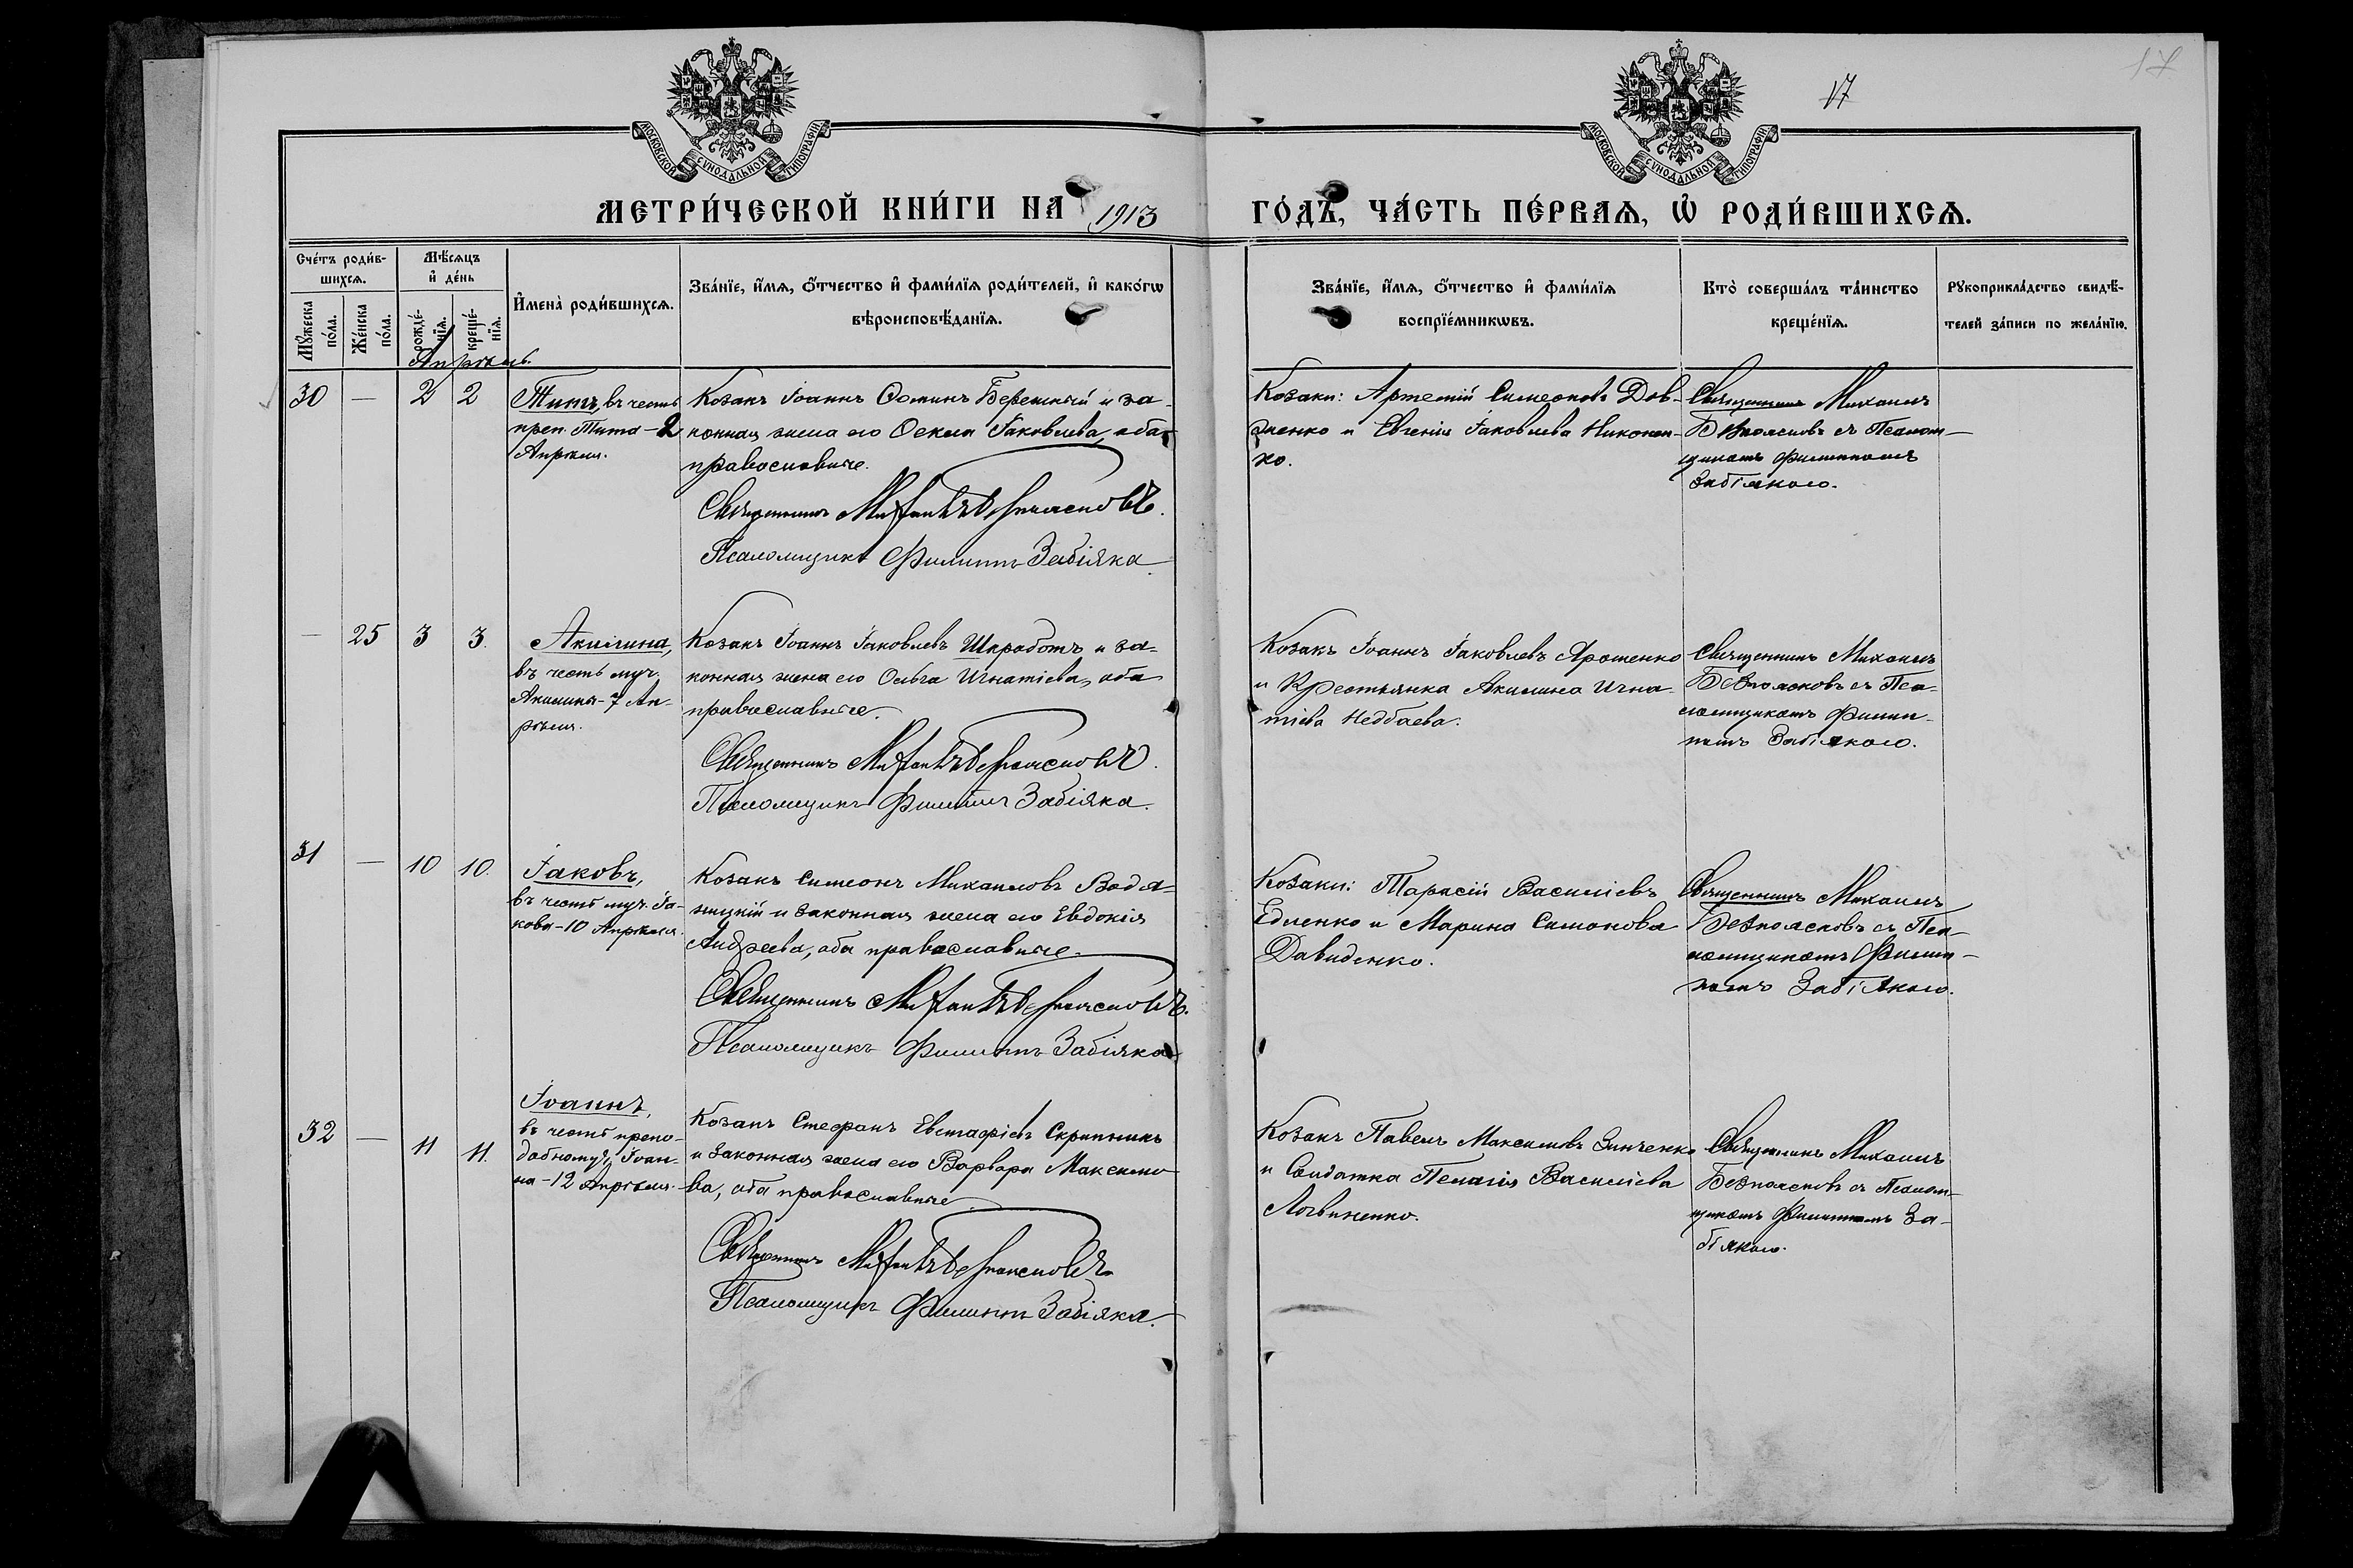 17
17
МОСКОВСКОЙ СѴНОДАЛЬНОЙ ТИПОГРАФІИ
МОСКОВСКОЙ СѴНОДАЛЬНОЙ ТИПОГРАФІИ
МЕТРИ́ЧЕСКОЙ КНИ́ГИ НА 1913 ГО́ДЪ, ЧА́СТЬ ПЕ́РВАЯ, Ѡ҆ РОДИ́ВШИХСЯ.
Сче́тъ роди́в-
шихся.
Мꙋ́жеска по́ла.
Же́нска по́ла.
Мѣ́сяцъ
и҆ де́нь
рожде́-
нїя.
креще́-
нїя.
И҆мена̀ роди́вшихся.
Зва́нїе, и҆́мя, ѻ҆́тчество и҆ фами́лїя роди́телей, и҆ како́гѡ
вѣроисповѣ́данїя.
Зва́нїе, и҆́мя, ѻ҆́тчество и҆ фами́лїя
воспрїе́мникѡвъ.
Кто̀ соверша́лъ та́инство
креще́нїя.
Рꙋкоприкла́дство свидѣ́-
телей за́писи по жела́нїю.
Апрѣль.
30 — 2 2
Титъ, въ честь
преп. Тита - 2
Апрѣля.
Козакъ Іоаннъ Ѳоминъ Бережный и за-
конная жена его Ѳекла Іаковлева, оба
православные.
Священникъ Михаилъ Безпоясковъ.
Псаломщикъ Филиппъ Забіяка.
Козаки: Артемій Симеоновъ Дов-
женко и Евгенія Іаковлева Никонен-
ко.
Священникъ Михаилъ
Безпоясковъ съ Псалом-
щикомъ Филиппомъ
Забіякою.
— 25 3 3.
Акилина,
въ честь муч.
Акилины - 7 Ап-
рѣля.
Козакъ Іоаннъ Іаковлевъ Шкработъ и за-
конная жена его Ольга Игнатіева, оба
православные.
Священникъ Михаилъ Безпоясковъ.
Псаломщикъ Филиппъ Забіяка.
Козакъ Іоаннъ Іаковлевъ Ярошенко
и Крестьянка Акилина Игна-
тіева Недбаева.
Священникъ Михаилъ
Безпоясковъ съ Пса-
ломщикомъ Филип-
помъ Забіякою.
31 — 10 10.
Іаковъ,
въ честь муч. Іа-
кова - 10 Апрѣля.
Козакъ Симеонъ Михаиловъ Водя-
жицкій и законная жена его Евдокія
Андреева, оба православные.
Священникъ Михаилъ Безпоясковъ.
Псаломщикъ Филиппъ Забіяка
Козаки: Тарасій Василіевъ
Едленко и Марина Симонова
Давиденко.
Священникъ Михаилъ
Безпоясковъ съ Пса-
ломщикомъ Филип-
помъ Забіякою.
32 — 11 11.
Іоаннъ,
въ честь препо-
добному Іоан-
на - 12 Апрѣля.
Козакъ Стефанъ Евстафіевъ Скрипникъ
и законная жена его Варвара Максимо-
ва, оба православные
Священникъ Михаилъ Безпоясковъ
Псаломщикъ Филиппъ Забіяка.
Козакъ Павелъ Максимовъ Зинченко
и Солдатка Пелагія Василіева
Логвиненко.
Священникъ Михаилъ
Безпоясковъ съ Псалом-
щикомъ Филиппомъ За-
біякою.